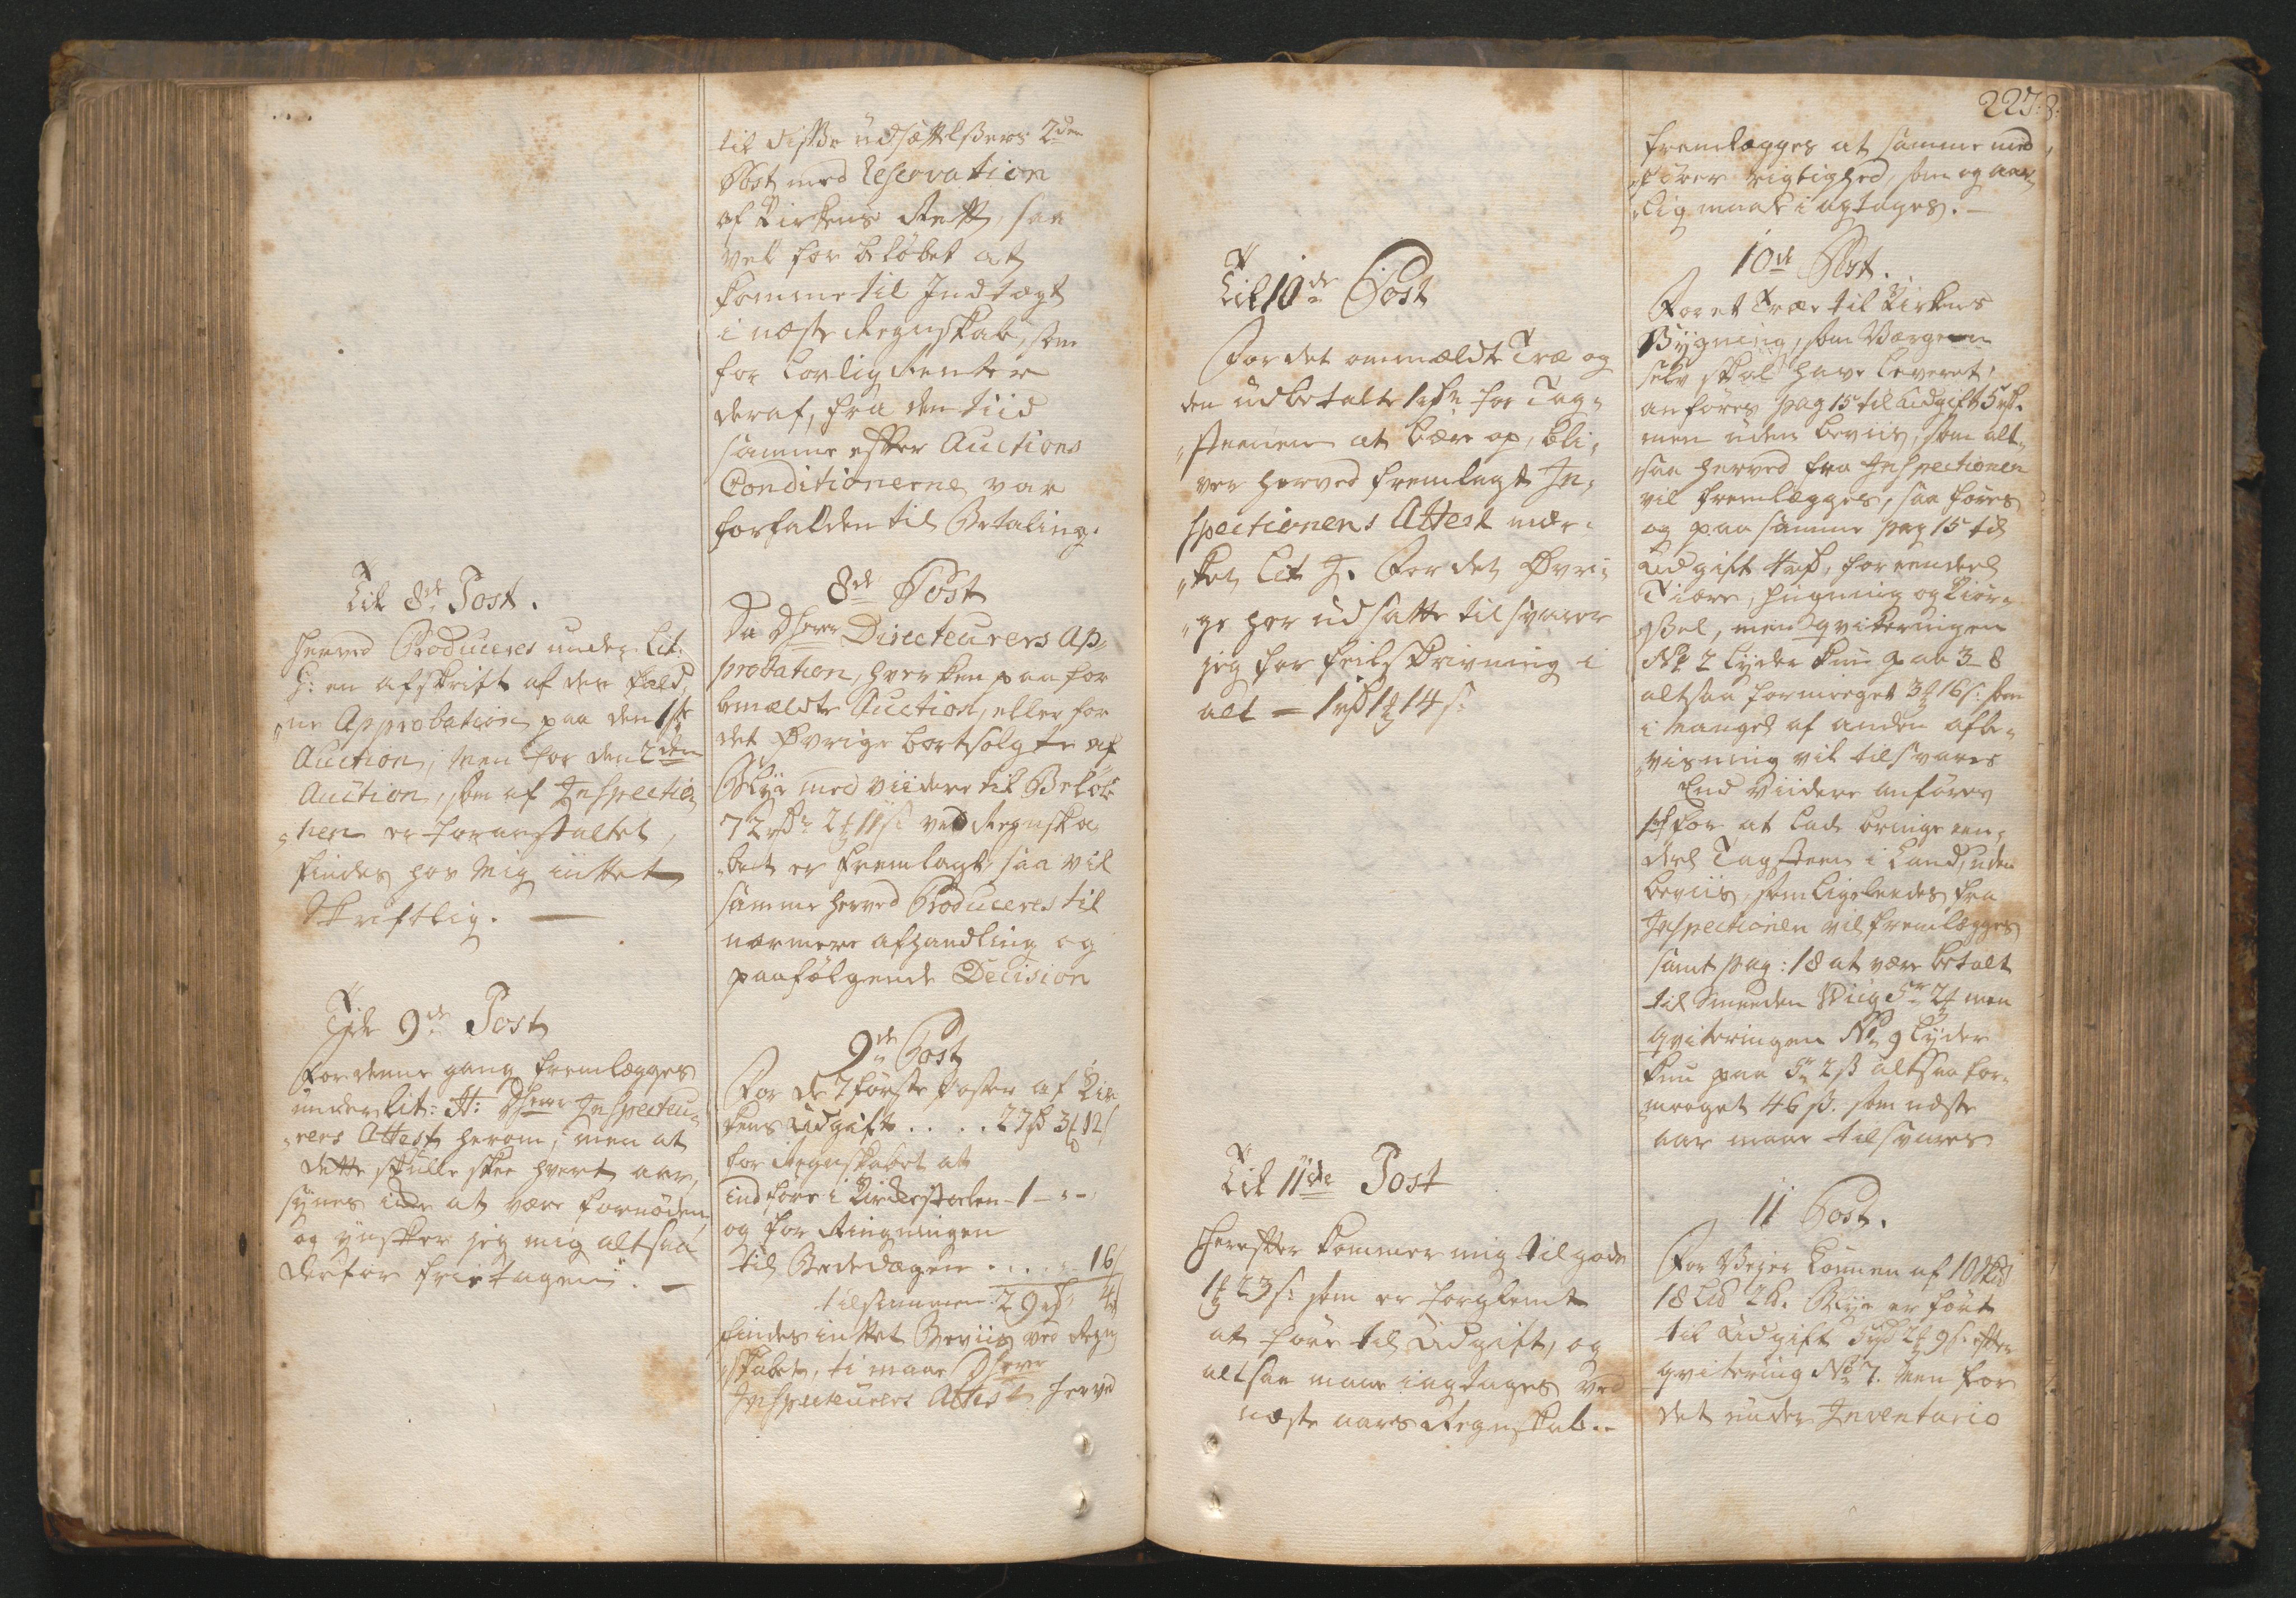 Til 8de Post.
Herved Produceres under Lit:
H: en afskrift af den fald,
ne Approbation paa den 1ste
Auction, men for den 2den
Auction, som af Inspectio
nen er foranstaltet,
findes hos mig intet
Skriftlig.
Til 9de Post
For denne gang fremlægges
under Lit: H: DHerr Inspecteu
rers Attest herom, men at
dette skulle skee hvert aar,
synes icke at være fornøden,
og ynsker jeg mig altsaa
derfor fritagen.
til disse udsættelsers 2den
Post med Reservation
af Kirkens Rett, saa
vel for beløbet at
komme til Indtægt
i næste Regnskab, som
for lovlig Renter
deraf, fra den tiid
samme efter Auctions
Conditionerne var
forfalden til Betaling.
8de Post
Da DHerr Directeurers Ap
probation, hverken paa for
bemældte Auction, eller for
det øvrige bortsolgte af
Blye med viidere til Beløb
72 rdr 2 11 s: ved Regnska
bet er fremlagt saa vil
samme herved Produceres til
nærmere afhandling og
paafølgende Decision
9de Post
For de 7 første Poster af Kir
kens Udgift . . . . 27 3 12
for Regnskabet at
indføre i Kirkestoelen - 1 - " -
og for Ringningen
til Bededagen . . . " 16
tilsammen 29 4
findes intet Beviis ved Regn
skabet, ti maae DHerr
Inspecteurers Attest herved
Til 10de Post
For det ommældte Træ og
den udbetalte 1 rdr for Tag-
steenene at bære op, bli-
ver herved fremlagt In-
spectionens Attest mær-
ket Lit J. For det Øvri-
ge her udsatte tilsvarer
jeg for feilskrivning i
alt = 1 rd 1 14 s:
Til 11de Post
Herefter kommer mig tilgode
1 23 s: som er forglemt
at føre til Udgift, og
altsaa maae iagtages ved
næste aars Regnskab.
227.
fremlægges at samme med
fører rigtighed, som og aar
lig maae iagtages.
10de Post.
For et Træ til Kirkens
Bygning, som Værgeren
selv skal have leveret,
anføres pag 15 til Udgift 5 rd.
men uden beviis, som alt-
saa herved fra Inspectionen
vil fremlægges, saa føres
og paa samme pag 15 til
Udgift 4 rd, for eendeel
Tiære, hugning og Kiør-
sel, men qviteringen
No 2 lyder kun paa 3 - 8
altsaa formeeget 3 16 s: som
i mangel af anden afbe-
viisning vil tilsvares
End viidere anføres
for at lade bringe een-
deel Tagsteen i Land, uden
beviis, som ligeleedes fra
Inspectionen vil fremlægges
samt pag: 18 at være betalt
til Smeeden 2 men
qviteringen No 9 lyder
kun paa 2 ß altsaa for-
meeget 46 ß. som næste
aar maae tilsvares
11 Post.
For Vejer Lønnen af 10
18 Lod 2 Blye er ført
til Udgift 2 9 s. efter
qvitering No 7. men for
det under Inventario